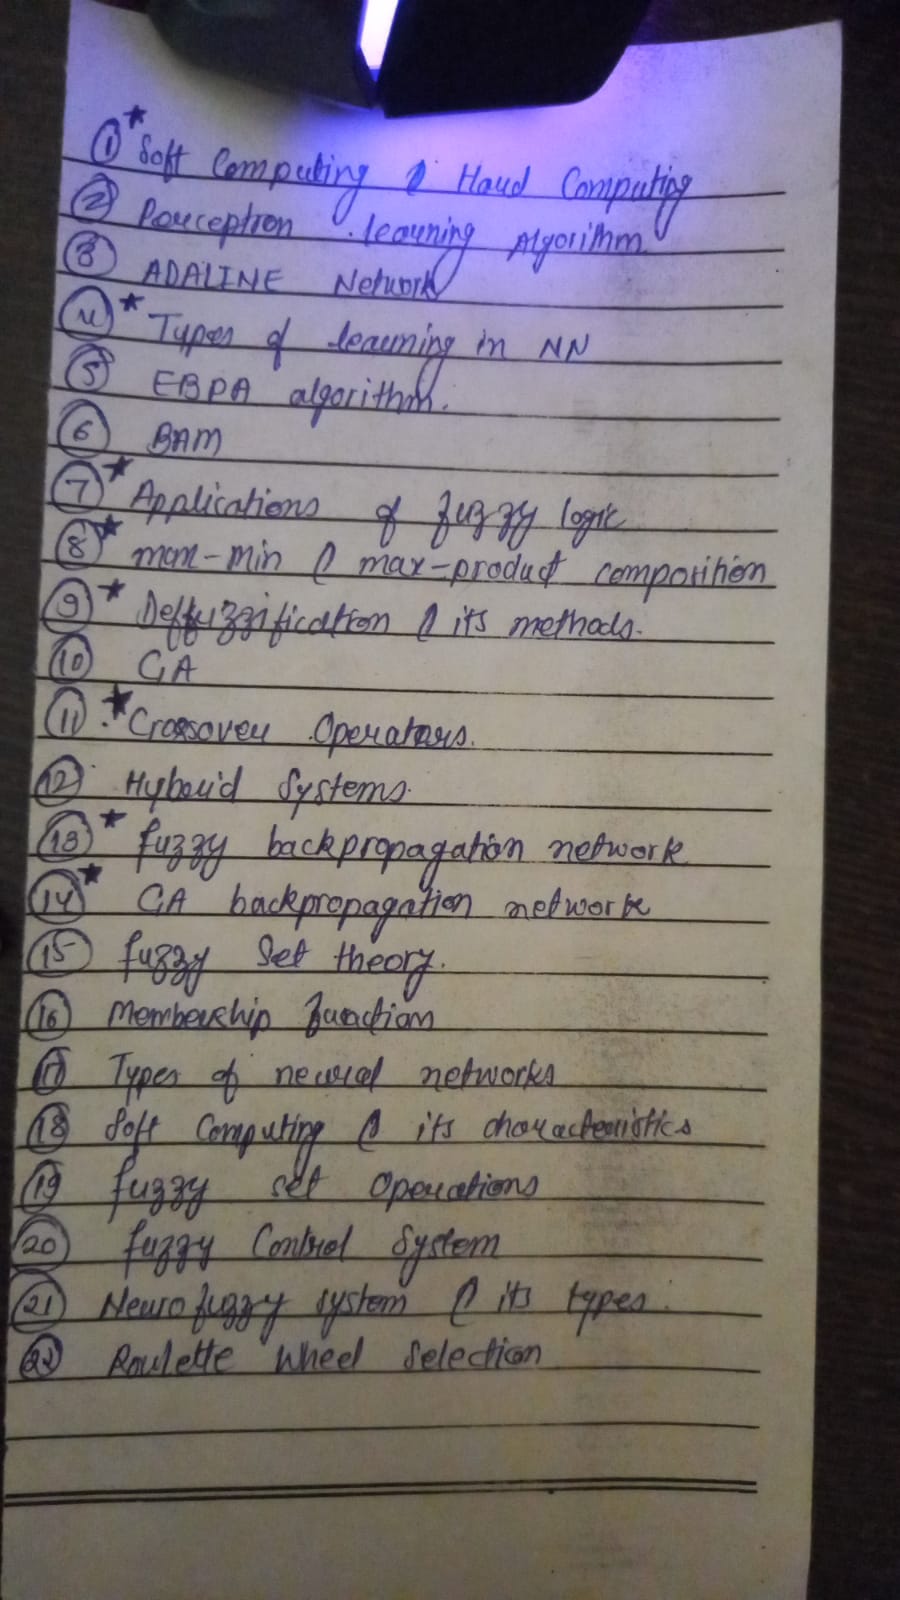 ① * Soft Computing & Hard Computing
② Perceptron learning Algorithm
③ ADALINE Network
④ * Types of learning in NN
⑤ EBPA algorithm.
⑥ BAM
⑦ * Applications of fuzzy logic
⑧ * max-min & max-product composition
⑨ * Deffuzzification & its methods.
⑩ GA
⑪ * Crossover Operators.
⑫ Hybrid Systems.
⑬ * fuzzy backpropagation network
⑭ * GA backpropagation network
⑮ fuzzy Set theory.
⑯ Membership function
⑰ Types of neural networks
⑱ Soft Computing & its characteristics
⑲ fuzzy set Operations
⑳ fuzzy Control System
㉑ Neuro fuzzy system & its types.
㉒ Roulette Wheel Selection